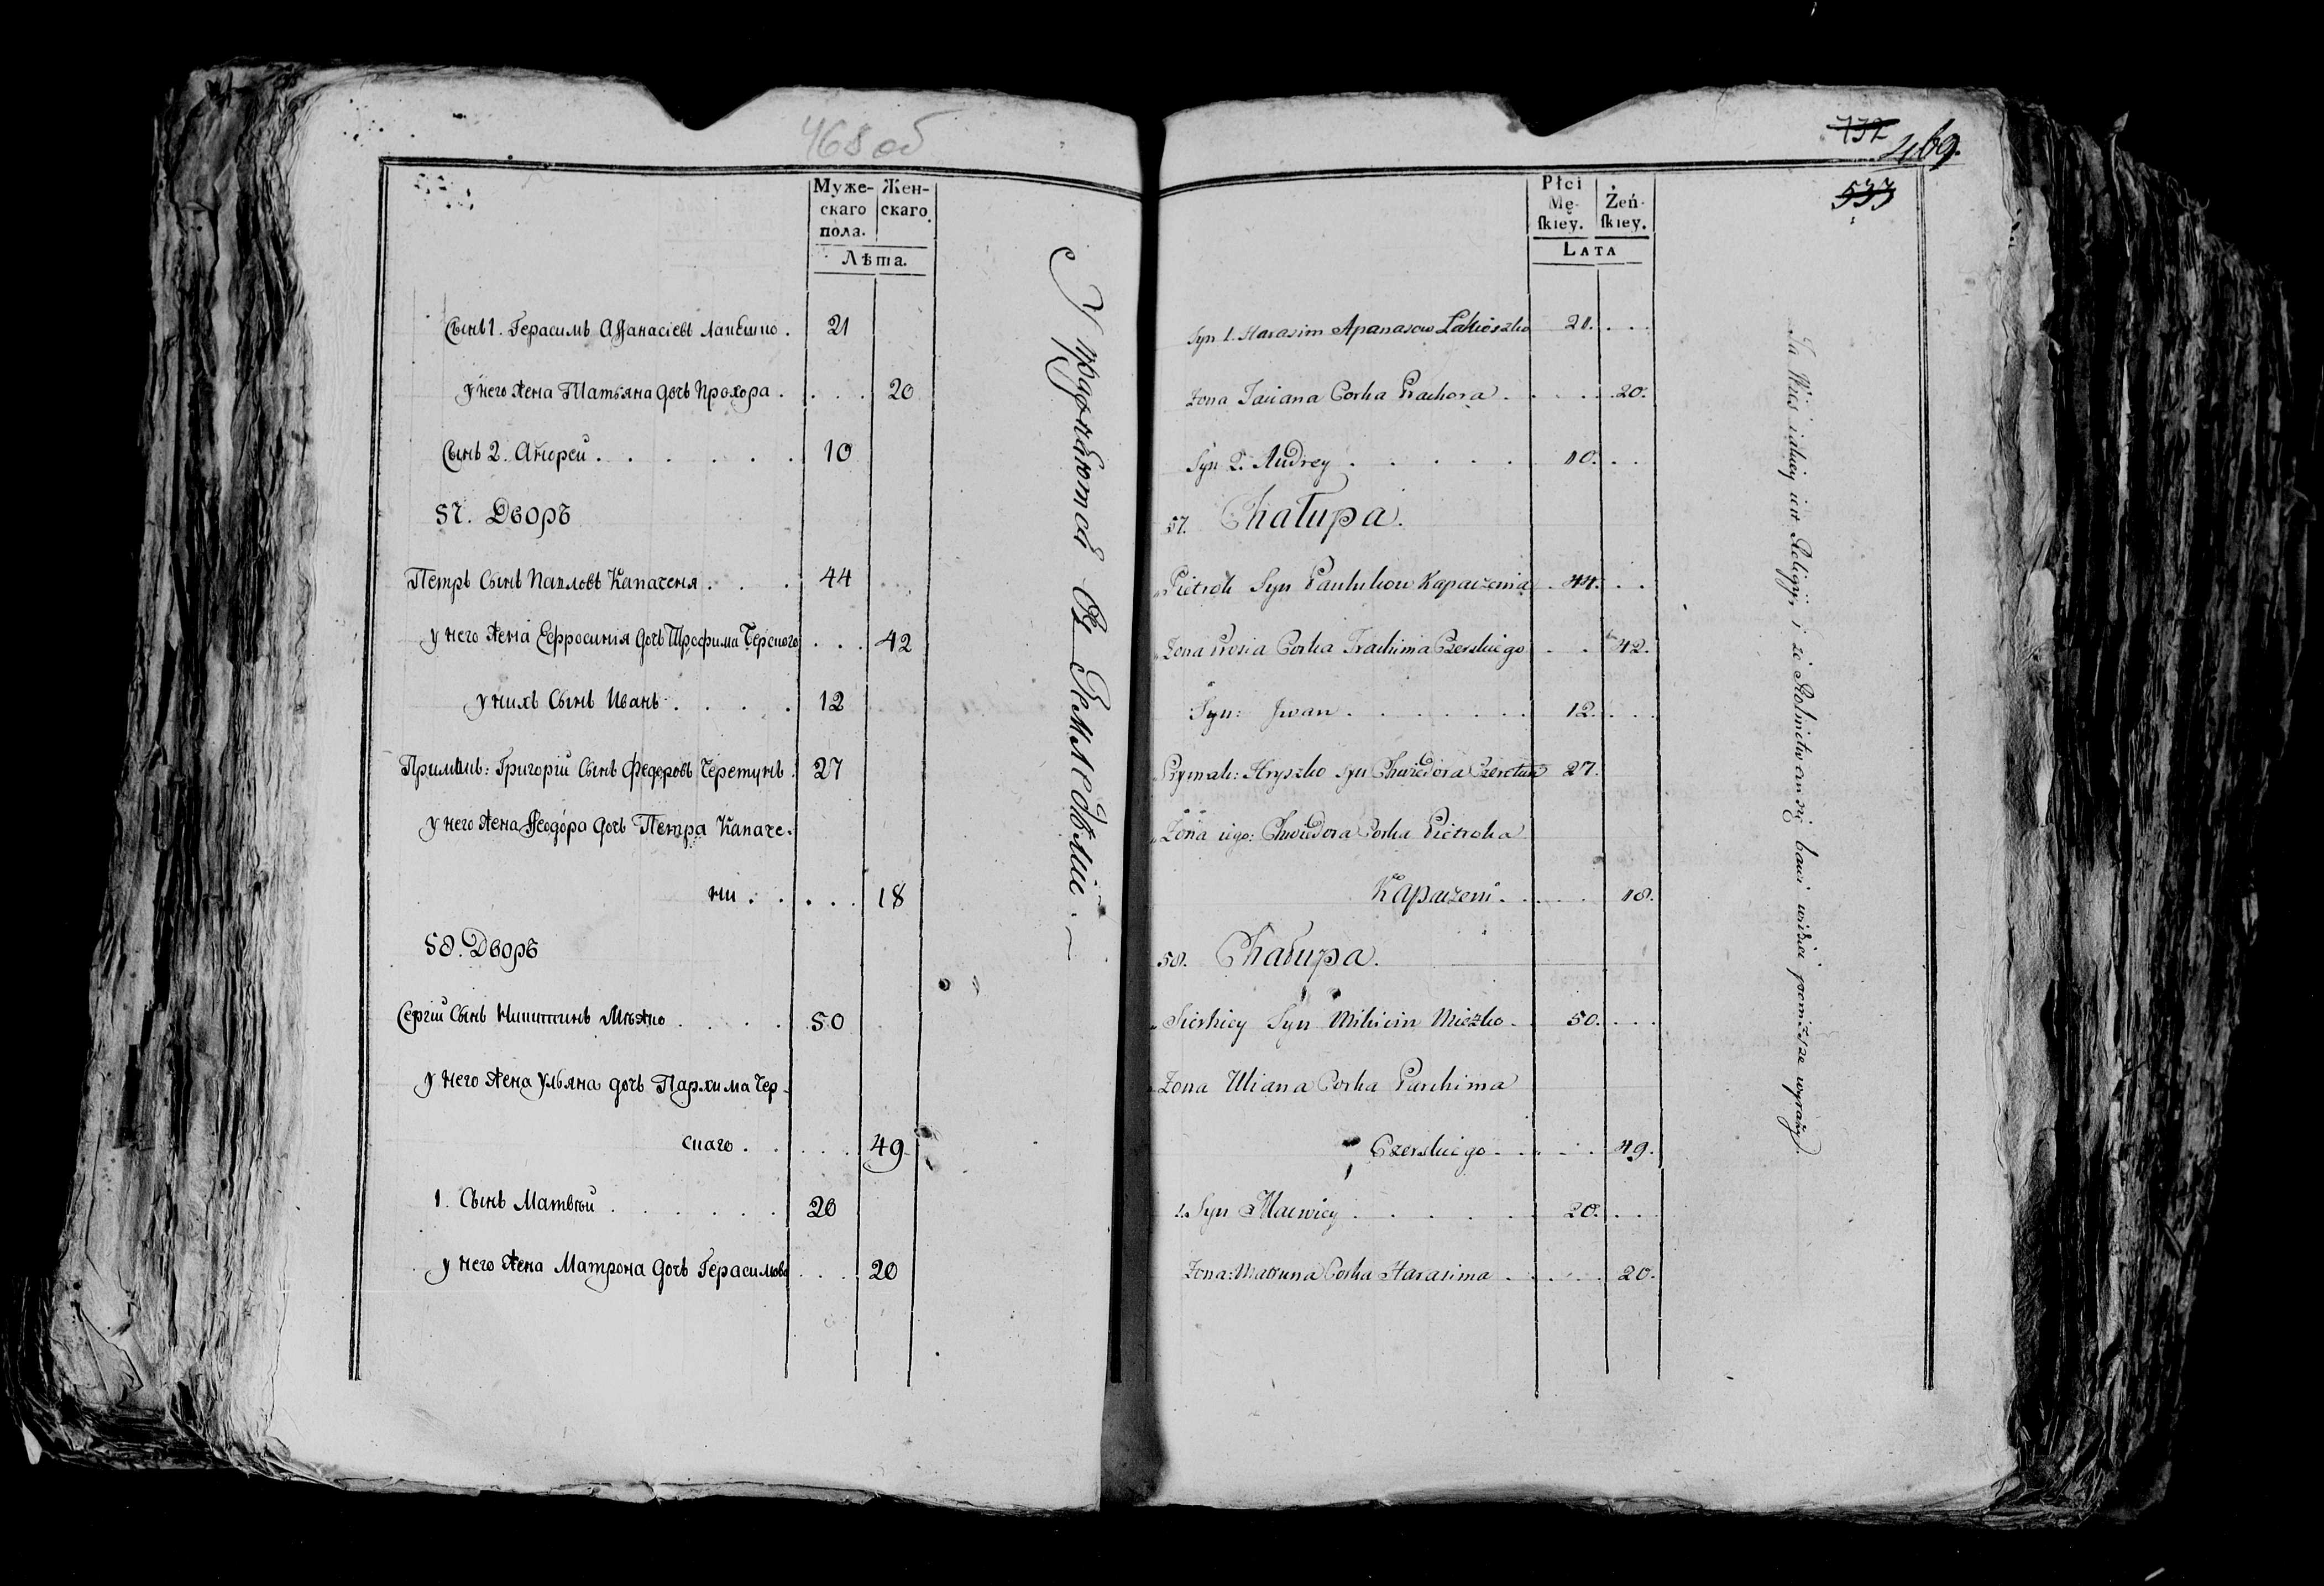 468 об
Муже- Жен-
скаго скаго
пола.
Лѣта.
Сынъ 1. Герасимъ Афанасіевъ Лапѣшко . 21
у него жена Татьяна дочь Прохора . . . . 20
Сынъ 2. Андрей . . . . . . 10
57. Дворъ
Петръ Сынъ Павловъ Капаченя . . . 44
у него жена Ефросинія дочь Трофима Черскаго . . . 42
у нихъ Сынъ Иванъ . . . . 12
Примакъ: Григорій Сынъ Федоровъ Черетунъ . 27
у него жена Феодора дочь Петра Капаче-
ни . . . . . 18
58. Дворъ
Сергій Сынъ Никитинъ Мѣжко . . . . 50
у него жена Ульяна дочь Пархима Чер-
скаго . . . . . 49
1. Сынъ Матвѣй . . . . . . 20
у него жена Матрона дочь Герасимова . . . 20
Упражняются въ Земледѣліи.
737
469.
533
Płci Żeń-
Mę- skiey.
skiey.
LATA
Syn 1. Harasim Apanasow 21. . . .
Zona Taciana Corka Prachora . . . . 20.
Syn 2. Andrey . . . . . 10. . .
57. Chałupa.
Pietrok Syn Paulukow Kapaczenia . 44. . .
Zona Prosia Corka Trachima Czerskiego . . 42.
Syn: Jwan . . . . . . . 12. . . .
Przymak: Hryszko Syn Chwiedora Czeretun 27.
Zona iego: Chwiedora Corka Pietroka
Kapaczeni . . . . 18.
58. Chałupa.
Sierhiey Syn Mikicin Mieżko . . 50. . . .
Zona Uliana Corka Parchima
Czerskiego . . . . . 49.
1. Syn Maćwiey . . . . . 20. . .
Zona: Matruna Corka Harasima . . . . . 20.
Ta Wieś iakiey iest Religiji, i że Rolnictwem się bawi widzieć poniższe wyrazy.